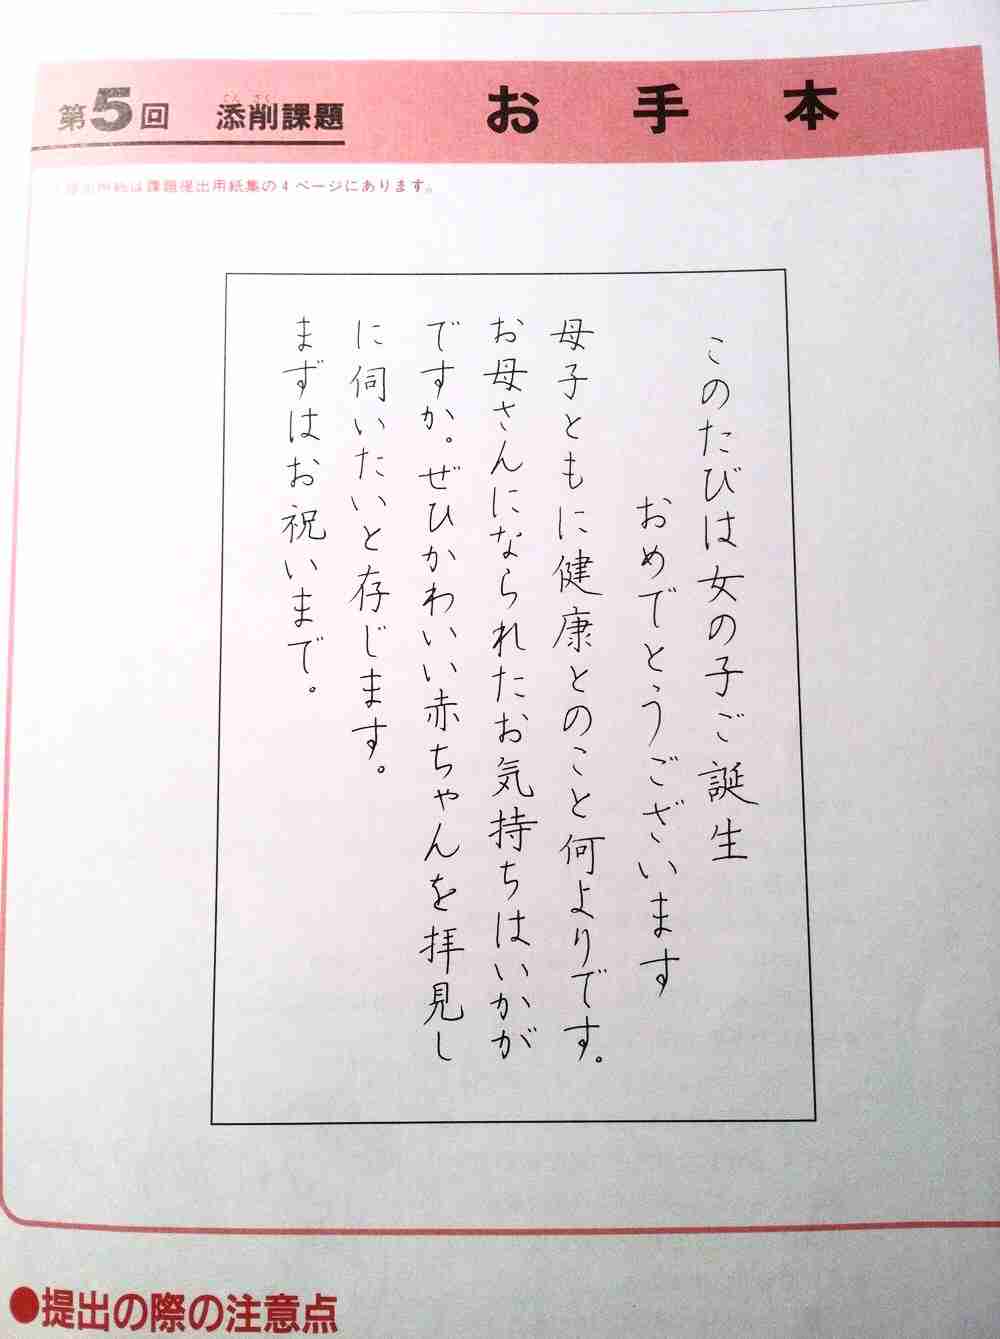 第5回 添削課題 お手本
提出用紙は課題提出用紙集の4ページにあります。
このたびは女の子ご誕生
おめでとうございます
母子ともに健康とのこと何よりです。
お母さんになられたお気持ちはいかが
ですか。ぜひかわいい赤ちゃんを拝見し
に伺いたいと存じます。
まずはお祝いまで。
●提出の際の注意点